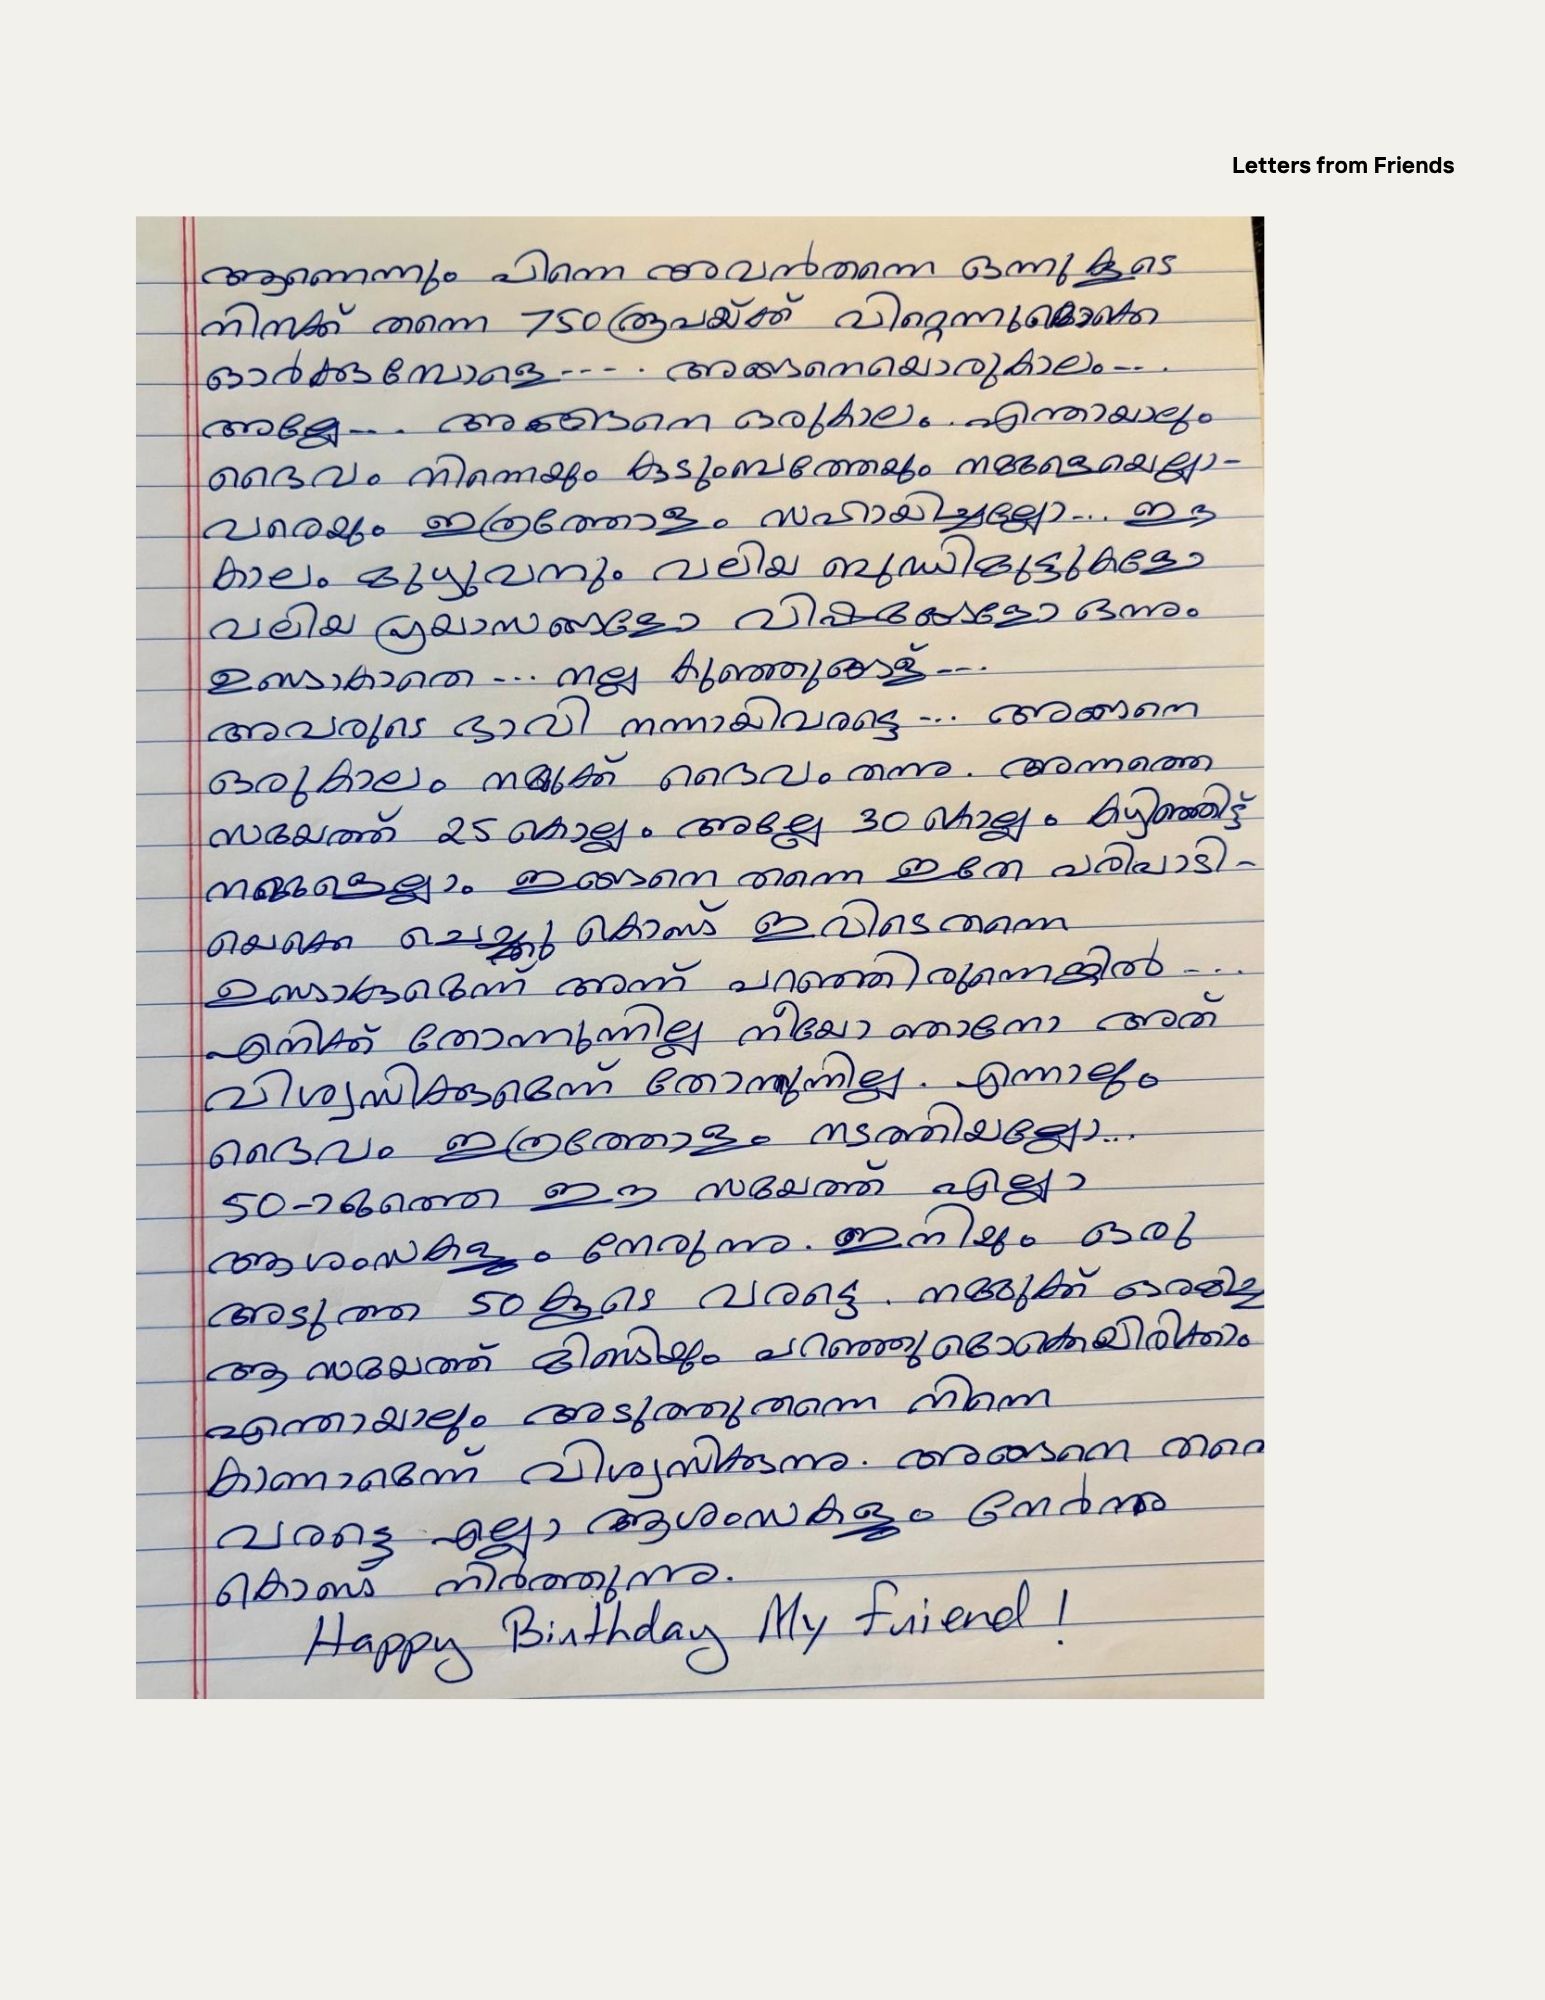 Letters from Friends
ആണെന്നും പിന്നെ അവൻതന്നെ ഒന്നുകൂടെ
നിനക്ക് തന്നെ 750 രൂപയ്ക്ക് വിറ്റെന്നുമൊക്കെ
ഓർക്കുമ്പോളെ ---- . അങ്ങനെയൊരുകാലം-- .
അല്ലേ-- . അങ്ങനെ ഒരുകാലം . എന്തായാലും
ദൈവം നിന്നെയും കുടുംബത്തേയും നമ്മളെയെല്ലാ-
വരെയും ഇത്രത്തോളം സഹായിച്ചല്ലോ... ഈ
കാലം മുഴുവനും വലിയ ബുദ്ധിമുട്ടുകളോ
വലിയ പ്രയാസങ്ങളോ വിഷമങ്ങളോ ഒന്നും
ഉണ്ടാകാതെ --- നല്ല കുഞ്ഞുങ്ങള് ---.
അവരുടെ ഭാവി നന്നായിവരട്ടെ --. അങ്ങനെ
ഒരുകാലം നമുക്ക് ദൈവം തന്നു. അന്നത്തെ
സമയത്ത് 25 കൊല്ലം അല്ലേ 30 കൊല്ലം കഴിഞ്ഞിട്ട്
നമ്മളെല്ലാം ഇങ്ങനെ തന്നെ ഇതേ പരിപാടി-
യൊക്കെ ചെയ്തു കൊണ്ട് ഇവിടെ തന്നെ
ഉണ്ടാകുമെന്ന് അന്ന് പറഞ്ഞിരുന്നെങ്കിൽ -..
എനിക്ക് തോന്നുന്നില്ല നീയോ ഞാനോ അത്
വിശ്വസിക്കുമെന്ന് തോന്നുന്നില്ല. എന്നാലും
ദൈവം ഇത്രത്തോളം നടത്തിയല്ലോ...
50-ാമത്തെ ഈ സമയത്ത് എല്ലാ
ആശംസകളും നേരുന്നു. ഇനിയും ഒരു
അടുത്ത 50 കൂടെ വരട്ടെ. നമ്മുക്ക്
ആ സമയത്ത് മിണ്ടിയും പറഞ്ഞുമൊക്കെയിരിക്കാം
എന്തായാലും അടുത്തുതന്നെ നിന്നെ
കാണാമെന്ന് വിശ്വസിക്കുന്നു. അങ്ങനെ തന്നെ
വരട്ടെ എല്ലാ ആശംസകളും നേർന്നു
കൊണ്ട് നിർത്തുന്നു.
Happy Birthday My friend !